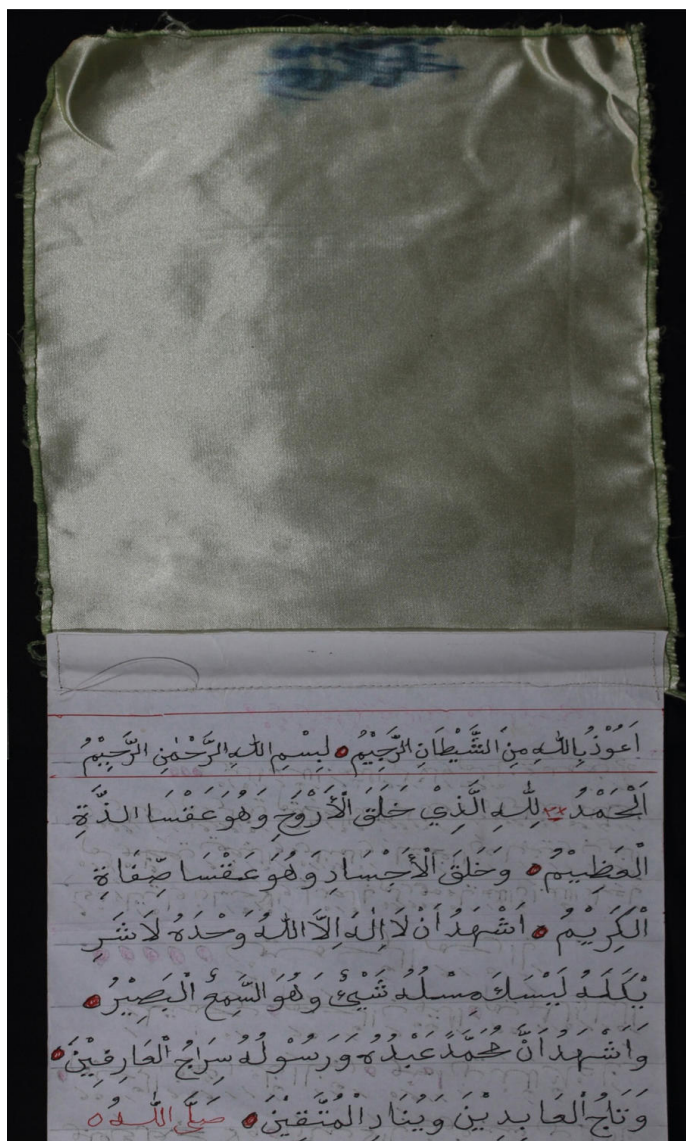 اَعُوْذُ بِاللّٰهِ مِنَ الشَّيْطَانِ الرَّجِيْمُ لِبِسْمِ اللّٰهِ الرَّحْمٰنِ الرَّحِيْمُ
اَلْحَمْدُ لِلّٰهِ الَّذِيْ خَلَقَ الْأَرْوَحِ وَهُوَ عَفْسَا الذَّةِ
الْعَظِيْمُ وَخَلَقَ الْأَجْسَادِ وَهُوَ عَفْسَا صِّفَاةِ
الْكَرِيْمُ اَشْهَدُ اَنْ لَا اِلٰهَ اِلَّا اللّٰهُ وَحْدَهُ لَا شَرِ
يْكَلَهُ لَيْسَكَ مِسْلُهُ شَيْئٌ وَهُوَ السَّمِعُ الْبَصِيْرُ
وَاَشْهَدُ اَنَّ مُحَمَّدً عَبْدُهُ وَرَسُوْلُهُ سِرَاجُ الْعَارِفِيْنَ
وَتَاجُ الْعَابِدِيْنَ وَيُنَارِ الْمُتَّقِيْنَ صَلَّى اللّٰهُ